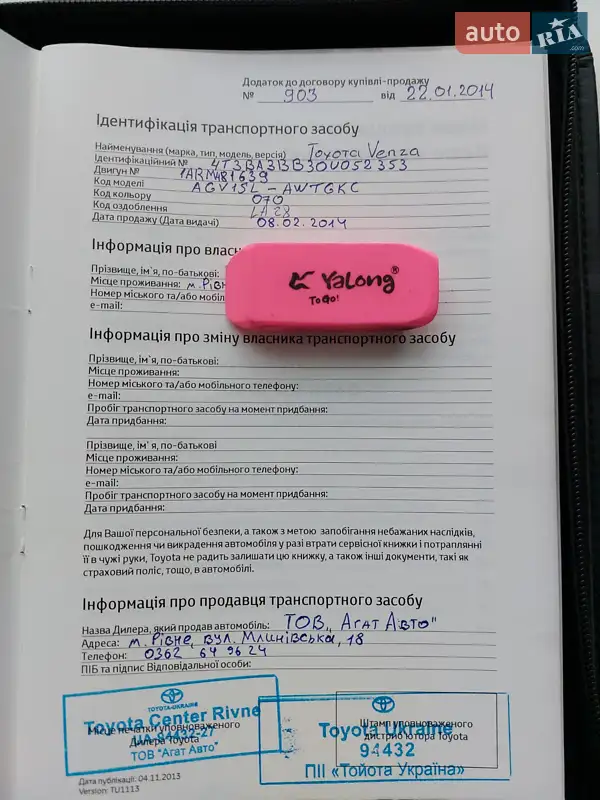 auto RIA .com
Додаток до договору купівлі-продажу
№ 903 від 22.01.2014
Ідентифікація транспортного засобу
Найменування (марка, тип, модель, версія) Toyota Venza
Ідентифікаційний № 4T3BA3BB30U052353
Двигун № 1ARM481639
Код моделі AGV15L-AWTGKC
Код кольору 070
Код оздоблення LA28
Дата продажу (Дата видачі) 08.02.2014
Інформація про
Прізвище, ім'я, по-батькові:
Місце проживання: м. Рівн
Номер міського та/або
e-mail:
YaLong®
To Go!
Інформація про зміну власника транспортного засобу
Прізвище, ім'я, по-батькові:
Місце проживання:
Номер міського та/або мобільного телефону:
e-mail:
Пробіг транспортного засобу на момент придбання:
Дата придбання:
Прізвище, ім'я, по-батькові
Місце проживання:
Номер міського та/або мобільного телефону:
e-mail:
Пробіг транспортного засобу на момент придбання:
Дата придбання:
Для Вашої персональної безпеки, а також з метою запобігання небажаних наслідків,
пошкодження чи викрадення автомобіля у разі втрати сервісної книжки і потраплянні
її в чужі руки, Toyota не радить залишати цю книжку, а також інші документи, такі як
страховий поліс, тощо, в автомобілі.
Інформація про продавця транспортного засобу
Назва Дилера, який продав автомобіль: ТОВ „Агат Авто"
Адреса: м. Рівне, вул. Млинівська, 18
Телефон: 0362 64 96 24
ПІБ та підпис Відповідальної особи:
TOYOTA-UKRAINE
Toyota Center Rivne
UA-94432-27
ТОВ "Агат Авто"
Місце печатки уповноваженого
Дилера Toyota
Toyota Ukraine
94432
ПІІ «Тойота Україна»
Штамп уповноваженого
дистриб'ютора Toyota
Дата публікації: 04.11.2013
Version: TU1113